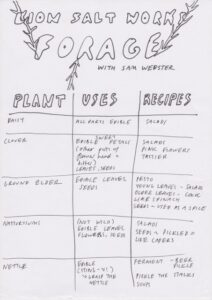 LION SALT WORKS
FORAGE
WITH SAM WEBSTER
PLANT USES RECIPES
DAISY ALL PARTS EDIBLE SALADS
CLOVER EDIBLE SWEET PETALS
(other parts of flower hard + bitter)
LEAVES, SEEDS
SALADS
PINK FLOWERS TASTIER
GROUND ELDER EDIBLE LEAVES
SEEDS
PESTO
YOUNG LEAVES - SALAD
OLDER LEAVES - COOK LIKE SPINACH
SEEDS - USED AS A SPICE
NASTURTIUMS (NOT WILD)
EDIBLE LEAVES
FLOWERS, SEEDS
SALADS
SEEDS = PICKLED LIKE CAPERS
NETTLE EDIBLE
NETTLE
FERMENT - BEER
PICKLE
PICKLE THE STALKS
SOUP